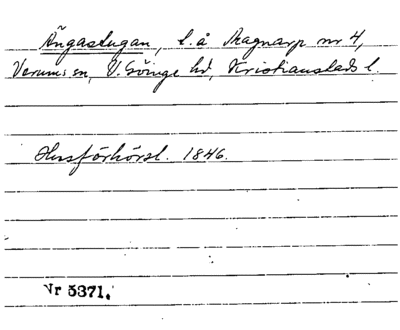 Ängastugan, t. å Magnarp nr 4,
Verums sn, V. Göinge hd, Kristianstads l.
Husförhörsl. 1846.
Nr 5371.